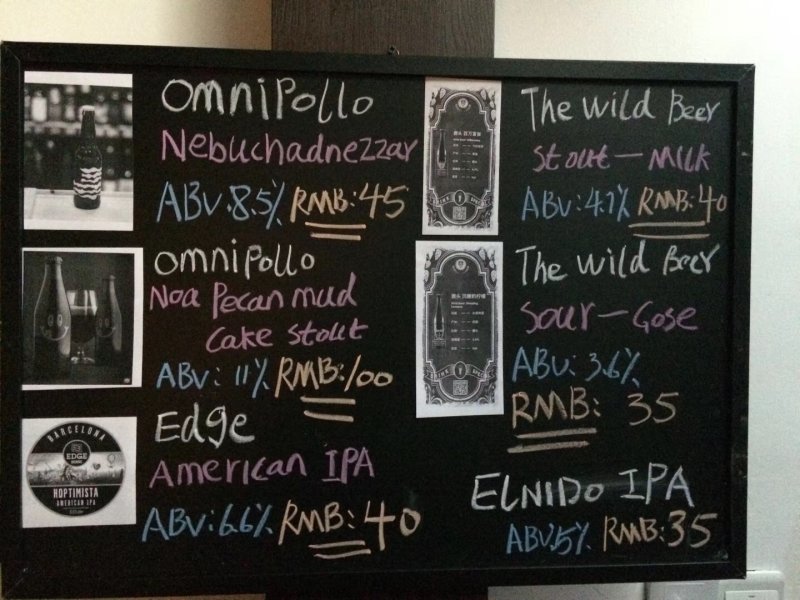 OmniPollo
Nebuchadnezzar
ABV:8.5% RMB:45
OmniPollo
Noa Pecan mud
Cake stout
ABV:11% RMB:100
BARCELONA
EDGE
HOPTIMISTA
AMERICAN IPA
Edge
American IPA
ABV:6.6% RMB:40
The Wild Beer
Stout—Milk
ABV:4.7% RMB:40
The Wild Beer
Sour—Gose
ABV:3.6%
RMB: 35
ELNIDO IPA
ABV:5% RMB:35